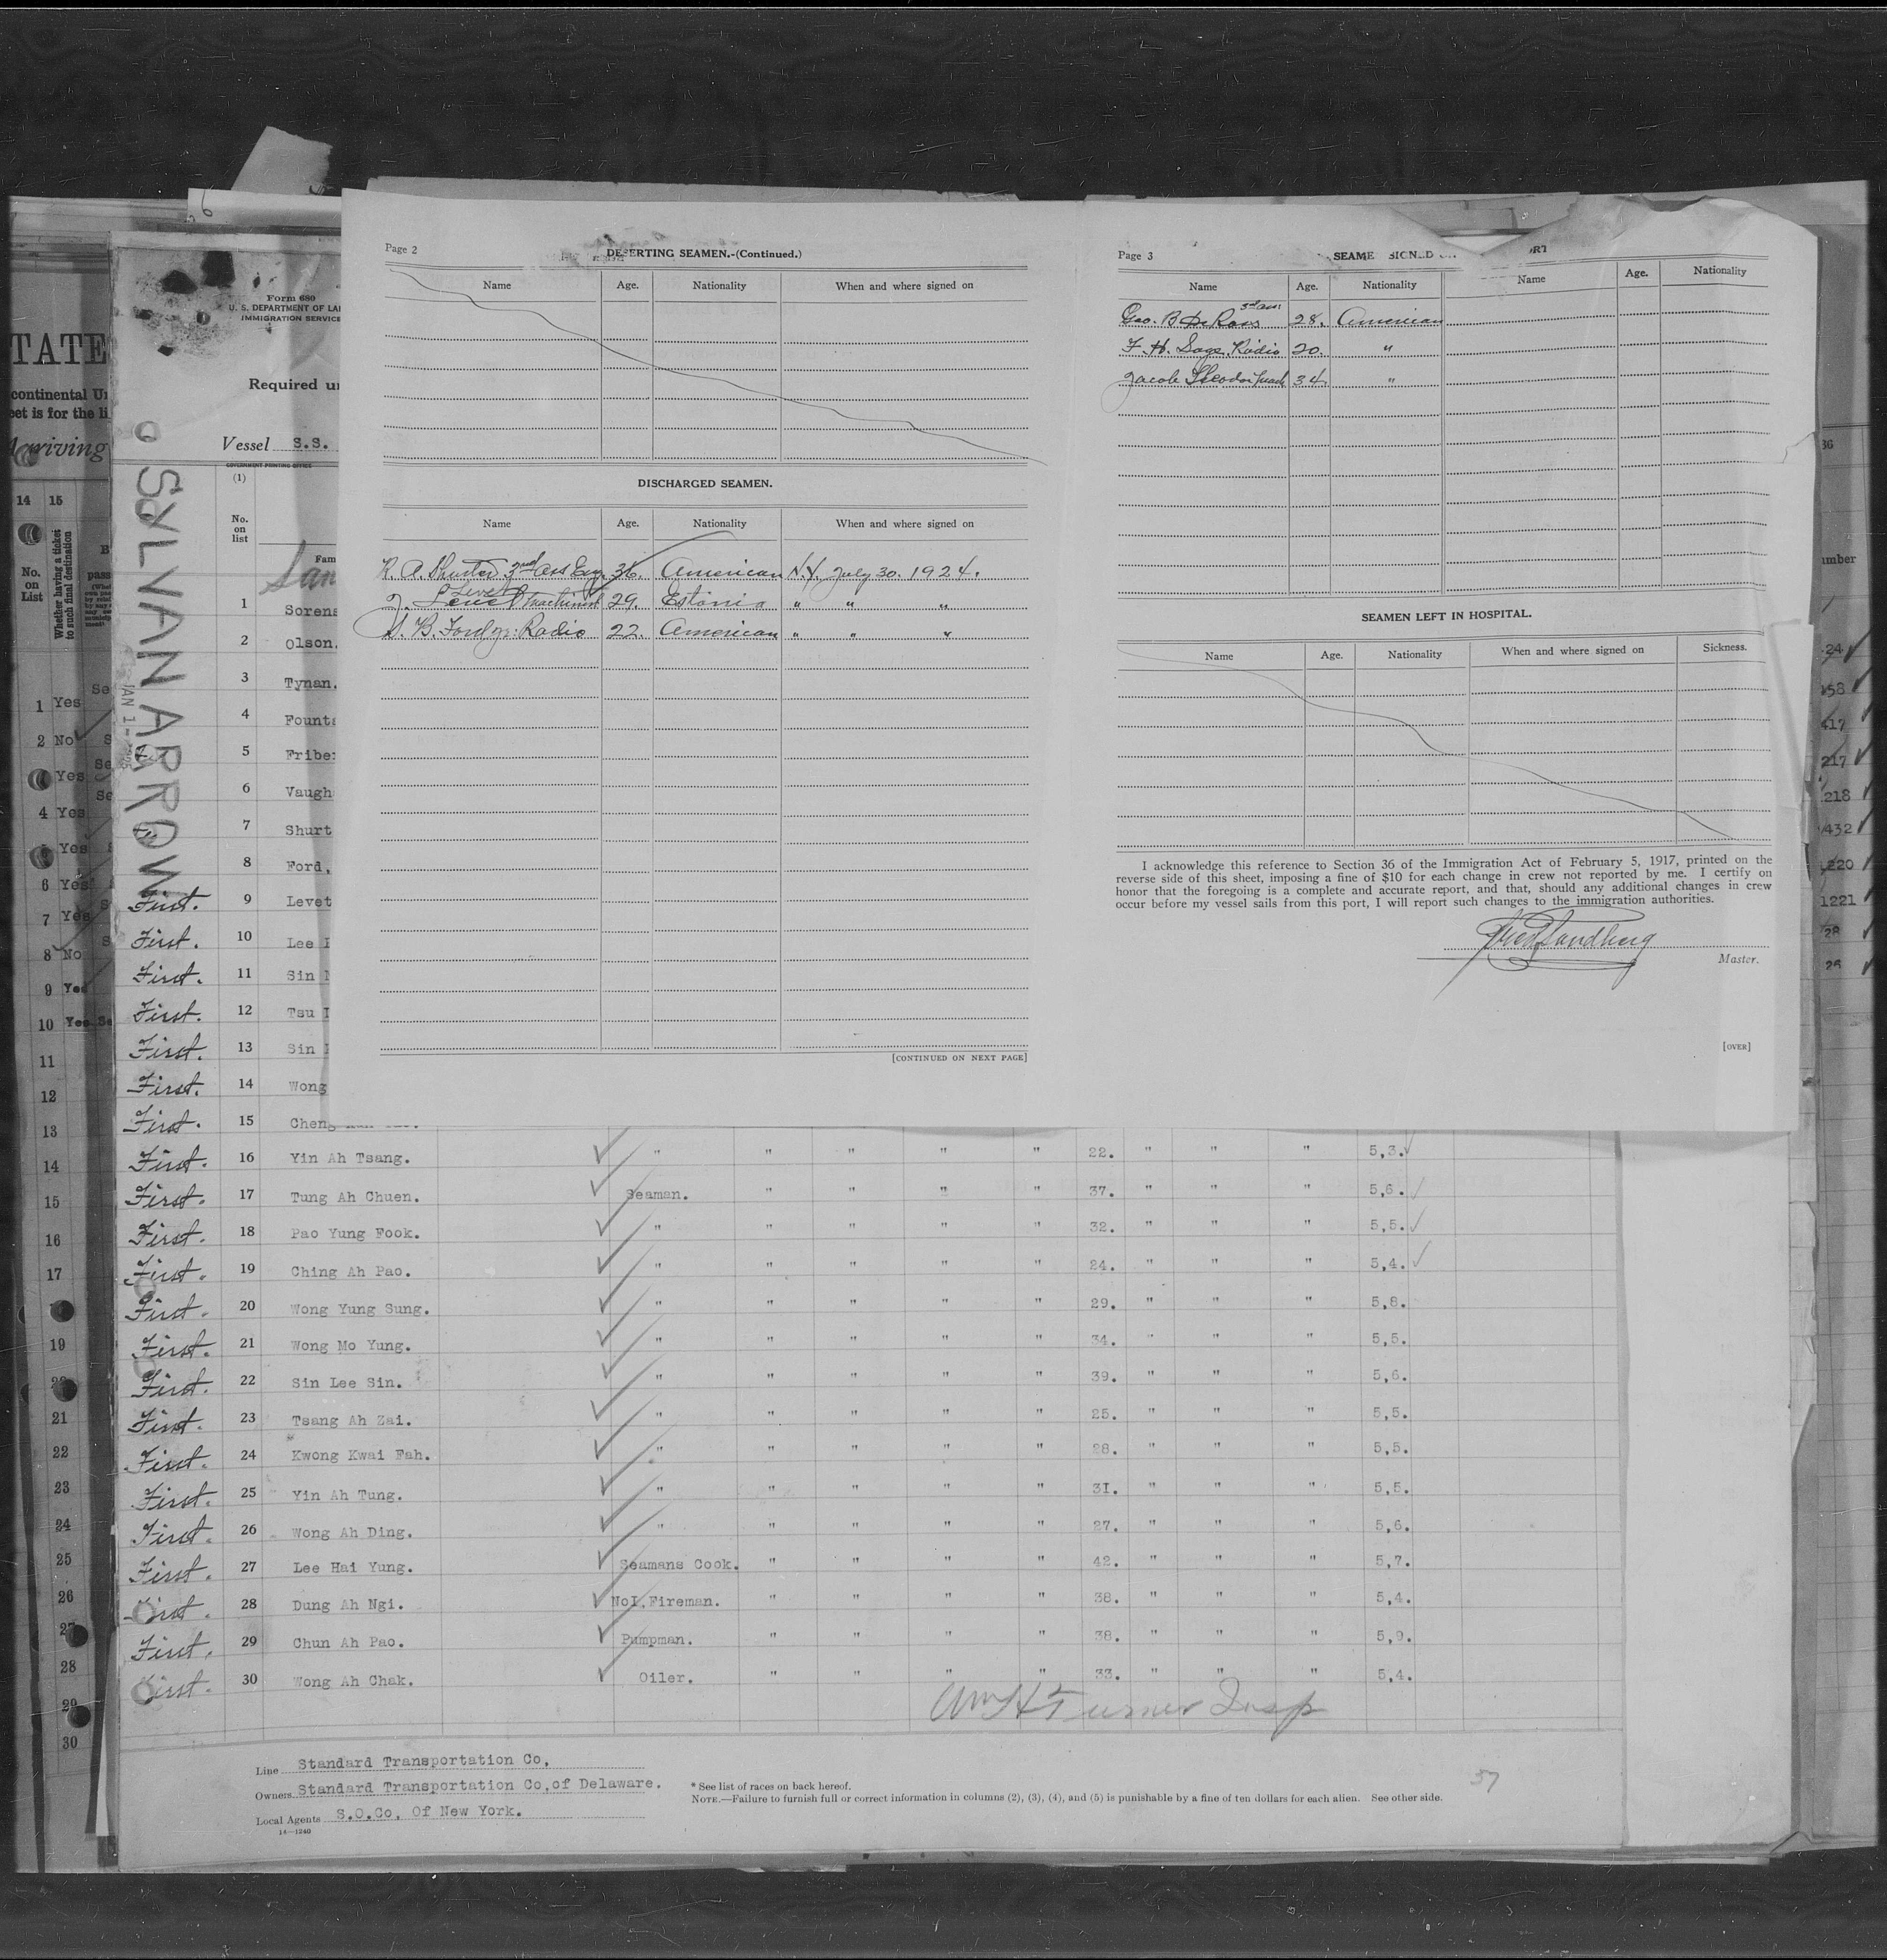 Page 2
DESERTING SEAMEN.-(Continued.)
Name Age. Nationality When and where signed on
DISCHARGED SEAMEN.
Name Age. Nationality When and where signed on
R. A. Shurter 3rd Ass Eng. 36. American N.Y. July 30. 1924.
Levet
J. Machinist 29. Estonia " " "
S. B. Ford jr. Radio 22. American " " "
[CONTINUED ON NEXT PAGE]
Page 3
SEAME SIGNED RT
Name Age. Nationality Name Age. Nationality
Geo. B De Roos 3rd ass 28. American
F. H. Radio 20. "
Jacob Theodor 34. "
SEAMEN LEFT IN HOSPITAL.
Name Age. Nationality When and where signed on Sickness.
I acknowledge this reference to Section 36 of the Immigration Act of February 5, 1917, printed on the
reverse side of this sheet, imposing a fine of $10 for each change in crew not reported by me. I certify on
honor that the foregoing is a complete and accurate report, and that, should any additional changes in crew
occur before my vessel sails from this port, I will report such changes to the immigration authorities.
Sandberg
Master.
[OVER]
TATE
continental Un
eet is for the li
Arriving
14 15
No.
on
List
Whether having a ticket
to such final destination
1 Yes
2 No
Yes
4 Yes
Yes
6 Yes
7 Yes
8 No
9 Yes
10 Yes Se
11
12
13
14
15
16
17
19
21
22
23
24
25
26
27
28
29
30
Form 680
U. S. DEPARTMENT OF LA
IMMIGRATION SERVICE
Required u
Vessel S.S.
GOVERNMENT PRINTING OFFICE
SYLVAN ARROW
JAN 1- 1925
(1)
No.
on
list
Fam
San
1 Sorens
2 Olson.
3 Tynan.
4 Founta
5 Friber
6 Vaugh
7 Shurt
8 Ford,
First. 9 Levet
First. 10 Lee
First. 11 Sin
First. 12 Tsu
First. 13 Sin
First. 14 Wong
First. 15 Cheng
First. 16 Yin Ah Tsang. " " " " " 22. " " " 5,3.
First. 17 Tung Ah Chuen. Seaman. " " " " 37. " " " 5,6.
First. 18 Pao Yung Fook. " " " " " 32. " " " 5,5.
First. 19 Ching Ah Pao. " " " " " 24. " " " 5,4.
First. 20 Wong Yung Sung. " " " " " 29. " " " 5,8.
First. 21 Wong Mo Yung. " " " " " 34. " " " 5,5.
First. 22 Sin Lee Sin. " " " " " 39. " " " 5,6.
First. 23 Tsang Ah Zai. " " " " " 25. " " " 5,5.
First. 24 Kwong Kwai Fah. " " " " " 28. " " " 5,5.
First. 25 Yin Ah Tung. " " " " " 31. " " " 5,5.
First. 26 Wong Ah Ding. " " " " " 27. " " " 5,6.
First. 27 Lee Hai Yung. Seamans Cook. " " " " 42. " " " 5,7.
First. 28 Dung Ah Ngi. NoI.Fireman. " " " " 38. " " " 5,4.
First. 29 Chun Ah Pao. Pumpman. " " " " 38. " " " 5,9.
First. 30 Wong Ah Chak. Oiler. " " " " 33. " " " 5,4.
Wm H Turner Insp
Line Standard Transportation Co,
Owners Standard Transportation Co,of Delaware.
Local Agents S.O.Co, Of New York.
14—1240
* See list of races on back hereof.
NOTE.—Failure to furnish full or correct information in columns (2), (3), (4), and (5) is punishable by a fine of ten dollars for each alien. See other side.
37
36
umber
24
158
417
217
218
432
220
1221
28
26